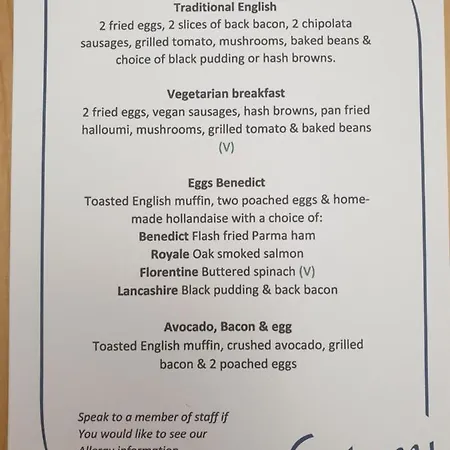 Traditional English
2 fried eggs, 2 slices of back bacon, 2 chipolata
sausages, grilled tomato, mushrooms, baked beans &
choice of black pudding or hash browns.
Vegetarian breakfast
2 fried eggs, vegan sausages, hash browns, pan fried
halloumi, mushrooms, grilled tomato & baked beans
(V)
Eggs Benedict
Toasted English muffin, two poached eggs & home-
made hollandaise with a choice of:
Benedict Flash fried Parma ham
Royale Oak smoked salmon
Florentine Buttered spinach (V)
Lancashire Black pudding & back bacon
Avocado, Bacon & egg
Toasted English muffin, crushed avocado, grilled
bacon & 2 poached eggs
Speak to a member of staff if
You would like to see our
Allergy information